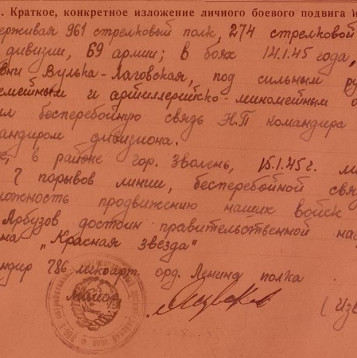 I. Краткое, конкретное изложение личного боевого подвига и
держивая 961 стрелковый полк, 274 стрелковой
дивизии, 69 армии; в боях 14.1.45 года,
вни Вулька-Лаговская, под сильным ру
еметным и артиллерийско-минометным о
ил бесперебойную связь Н.П командира
андиром дивизиона.
, в районе гор. Зволень, 15.1.45 г. ли
7 порывов линии, бесперебойной свя
ожность продвижению наших войск
Арбузов достоин правительственной наг
на „Красная Звезда"
ндир 786 лихарт. орд. Ленина полка
майор
(Изв